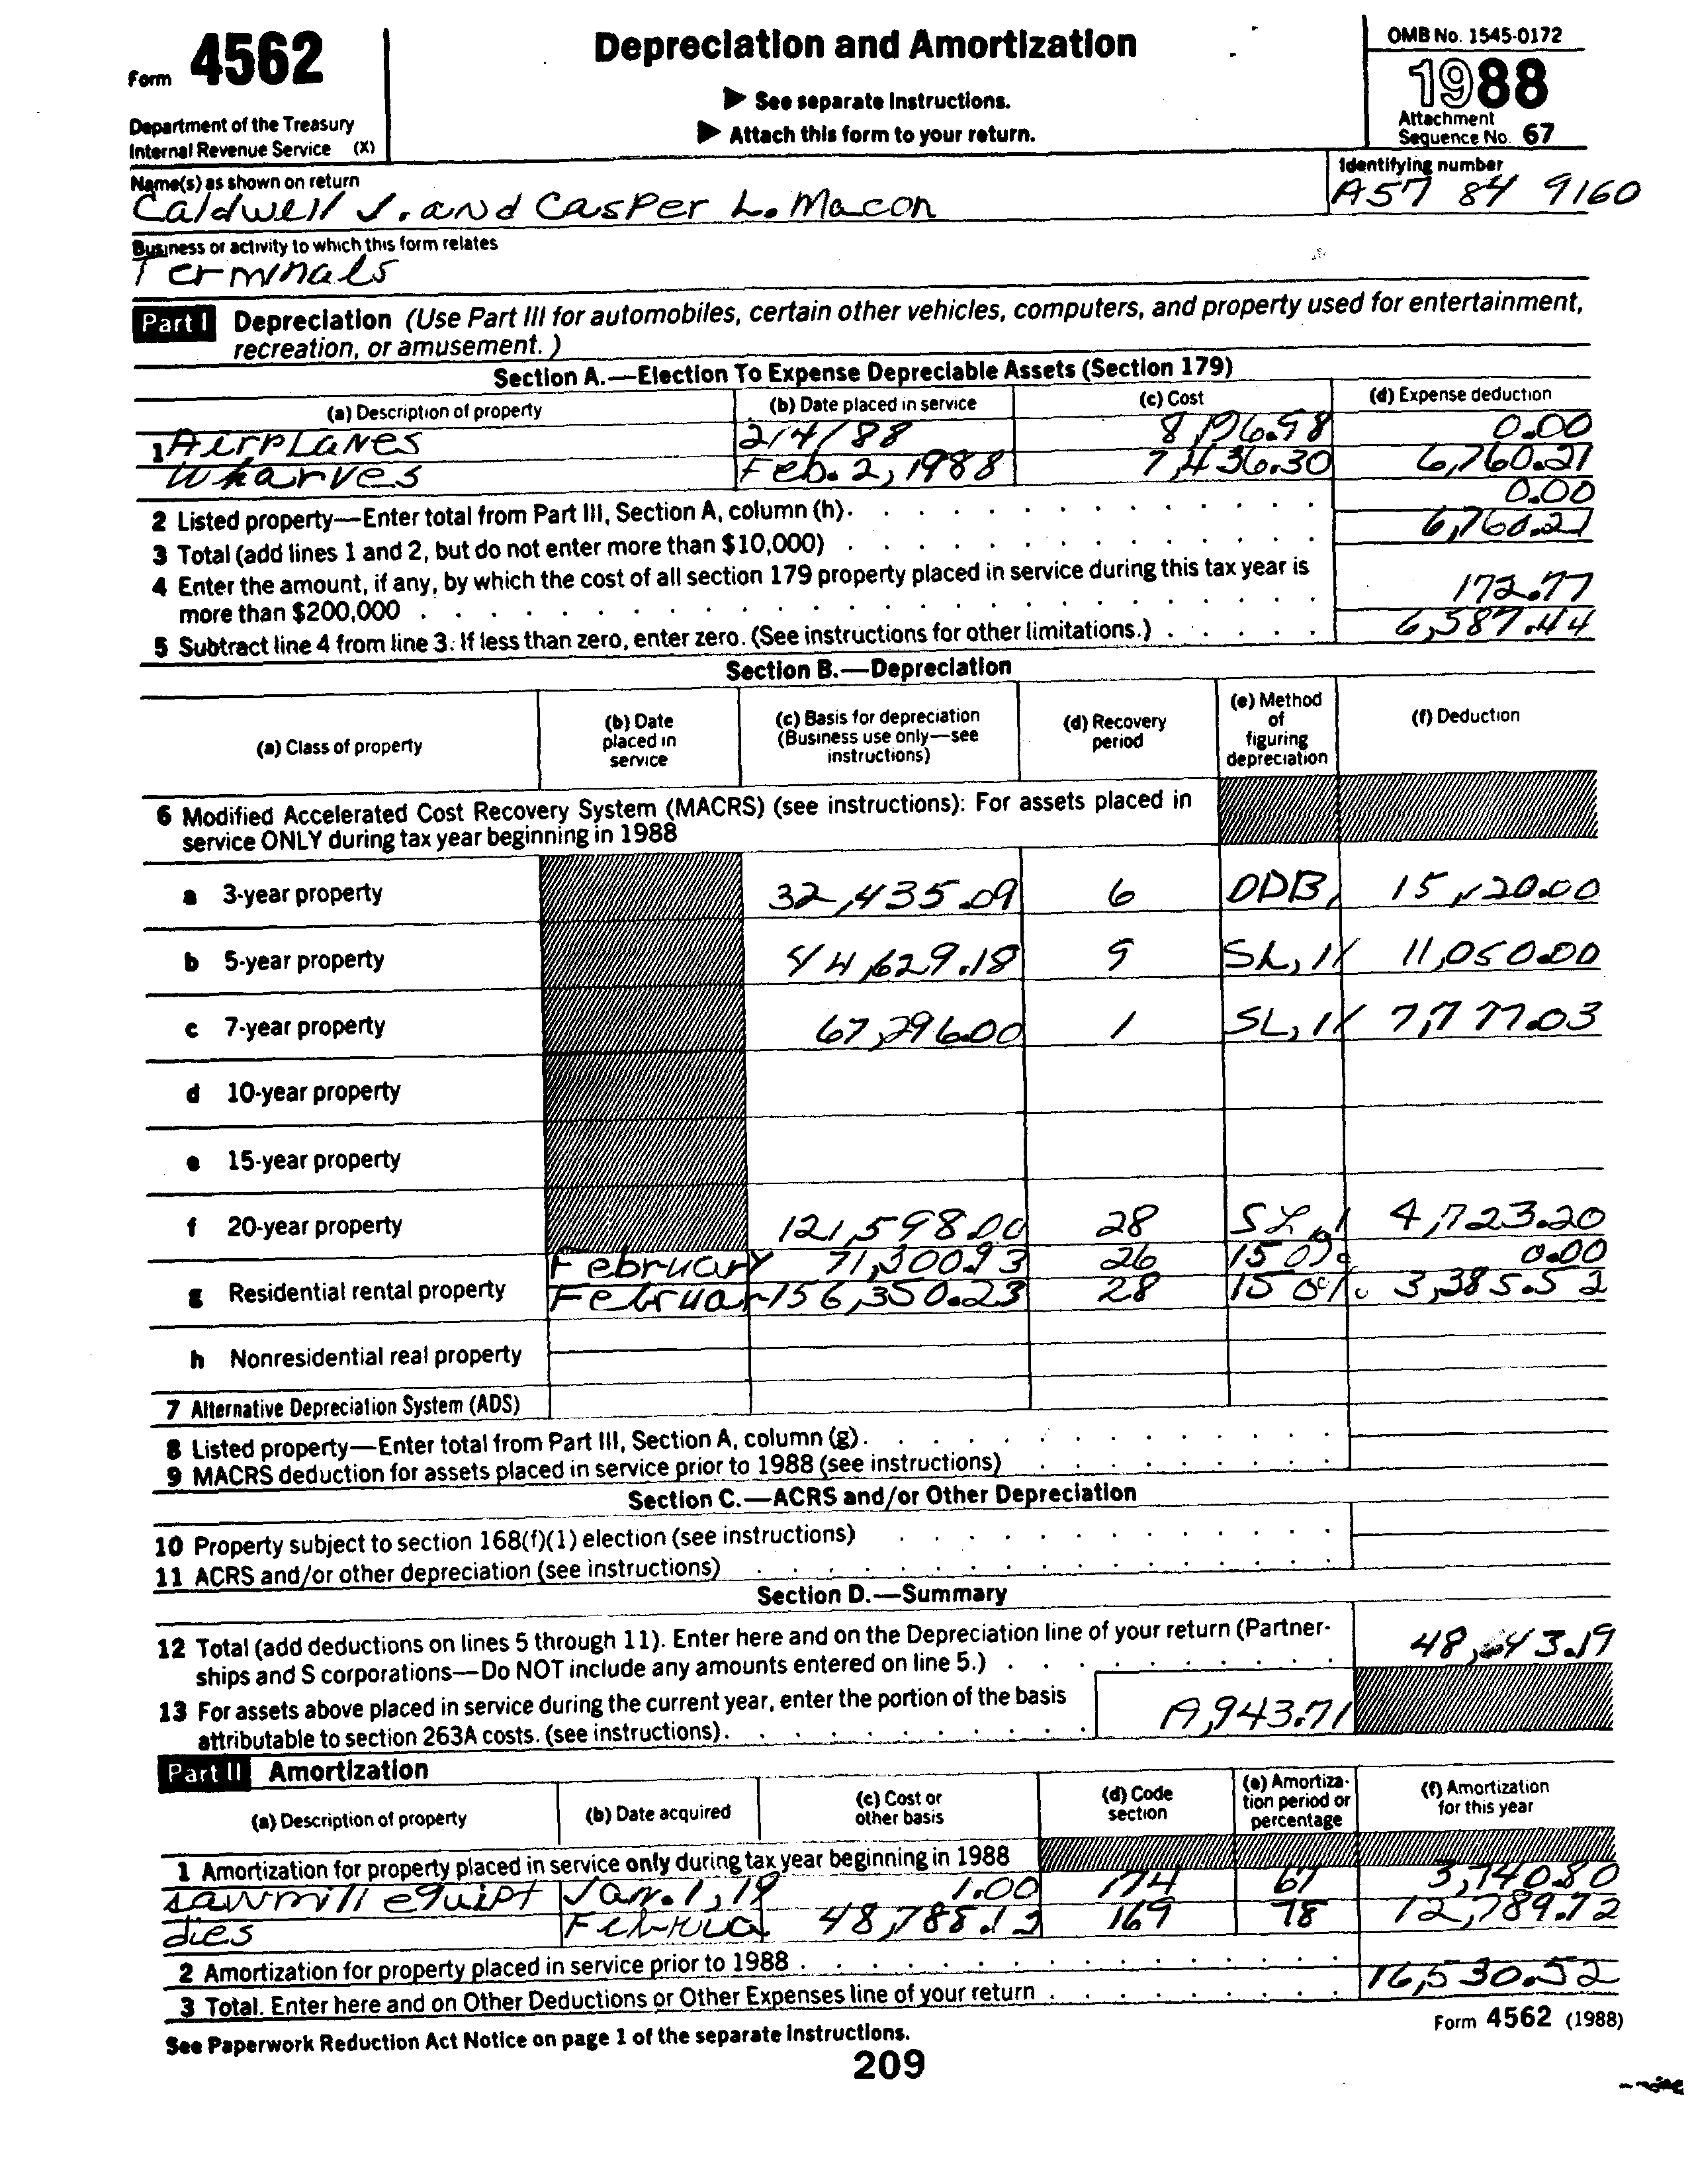 Form 4562
Department of the Treasury
Internal Revenue Service (X)
Depreciation and Amortization
▶ See separate Instructions.
▶ Attach this form to your return.
OMB No. 1545-0172
1988
Attachment
Sequence No. 67
Name(s) as shown on return
Caldwell J. and Casper L. Macon
Identifying number
A57 84 9160
Business or activity to which this form relates
Terminals
Part I Depreciation (Use Part III for automobiles, certain other vehicles, computers, and property used for entertainment,
recreation, or amusement.)
Section A.—Election To Expense Depreciable Assets (Section 179)
(a) Description of property (b) Date placed in service (c) Cost (d) Expense deduction
1 Airplanes 2/4/88 0.00
Wharves Feb. 2, 1988 7,436.30 6,760.21
0.00
2 Listed property—Enter total from Part III, Section A, column (h).
3 Total (add lines 1 and 2, but do not enter more than $10,000) 6,760.21
4 Enter the amount, if any, by which the cost of all section 179 property placed in service during this tax year is
more than $200,000 172.77
5 Subtract line 4 from line 3. If less than zero, enter zero. (See instructions for other limitations.) 6,587.44
Section B.—Depreciation
(a) Class of property (b) Date placed in service (c) Basis for depreciation (Business use only—see instructions) (d) Recovery period (e) Method of figuring depreciation (f) Deduction
6 Modified Accelerated Cost Recovery System (MACRS) (see instructions): For assets placed in
service ONLY during tax year beginning in 1988
a 3-year property 32,435.09 6 DDB, 15,120.00
b 5-year property 44,629.18 9 SL, 11,050.00
c 7-year property 67,296.00 1 SL, 7,777.03
d 10-year property
e 15-year property
f 20-year property 121,598.00 28 SL, 4,723.20
February 71,300.93 26 150% 0.00
g Residential rental property Februar 156,350.23 28 150% 3,385.52
h Nonresidential real property
7 Alternative Depreciation System (ADS)
8 Listed property—Enter total from Part III, Section A, column (g).
9 MACRS deduction for assets placed in service prior to 1988 (see instructions)
Section C.—ACRS and/or Other Depreciation
10 Property subject to section 168(f)(1) election (see instructions)
11 ACRS and/or other depreciation (see instructions)
Section D.—Summary
12 Total (add deductions on lines 5 through 11). Enter here and on the Depreciation line of your return (Partner-
ships and S corporations—Do NOT include any amounts entered on line 5.) 48,643.19
13 For assets above placed in service during the current year, enter the portion of the basis
attributable to section 263A costs. (see instructions). A,943.71
Part II Amortization
(a) Description of property (b) Date acquired (c) Cost or other basis (d) Code section (e) Amortiza-tion period or percentage (f) Amortization for this year
1 Amortization for property placed in service only during tax year beginning in 1988
sawmill equipt Jan. 1, 19 1.00 174 67 3,740.80
dies Februa 48,788.12 169 98 12,789.72
2 Amortization for property placed in service prior to 1988
3 Total. Enter here and on Other Deductions or Other Expenses line of your return 16,530.52
See Paperwork Reduction Act Notice on page 1 of the separate Instructions.
Form 4562 (1988)
209